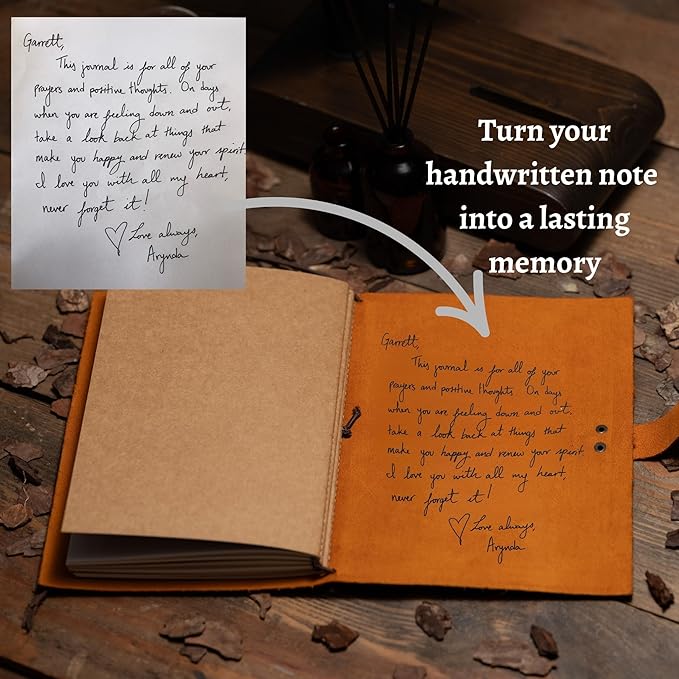 Garrett,
This journal is for all of your
prayers and positive thoughts. On days
when you are feeling down and out,
take a look back at things that
make you happy and renew your spirit.
I love you with all my heart,
never forget it!
♡ Love always,
Arynda
Turn your
handwritten note
into a lasting
memory
Garrett,
This journal is for all of your
prayers and positive thoughts. On days
when you are feeling down and out,
take a look back at things that
make you happy and renew your spirit.
I love you with all my heart,
never forget it!
♡ Love always,
Arynda